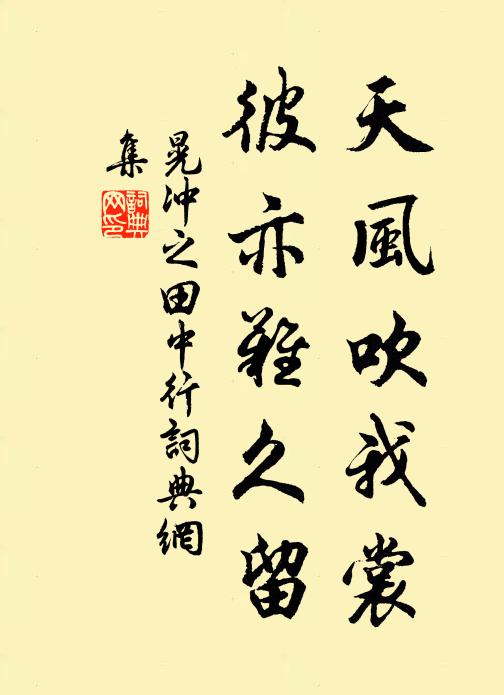 天風吹我裳
彼亦難久留
晃沖之田中行詞典網
集
詞典
网印